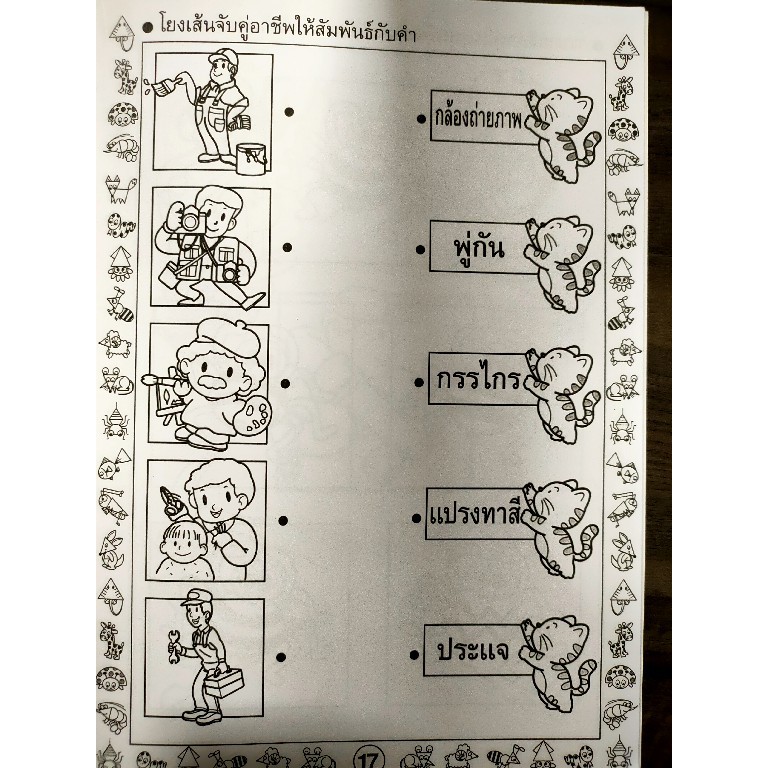 โยงเส้นจับคู่อาชีพให้สัมพันธ์กับคำ
กล้องถ่ายภาพ
พู่กัน
กรรไกร
แปรงทาสี
ประแจ
17